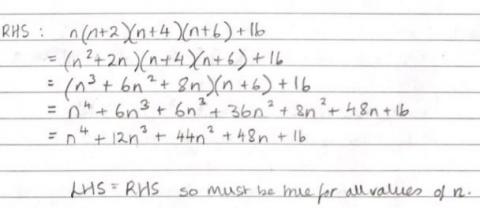 RHS : n(n+2)(n+4)(n+6)+16
= (n²+2n)(n+4)(n+6)+16
= (n³+6n²+8n)(n+6)+16
= n⁴+6n³+6n³+36n²+8n²+48n+16
= n⁴+12n³+44n²+48n+16
LHS = RHS so must be true for all values of n.